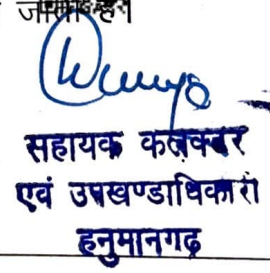 जाता है।
सहायक कलक्टर
एवं उपखण्डाधिकारी
हनुमानगढ़